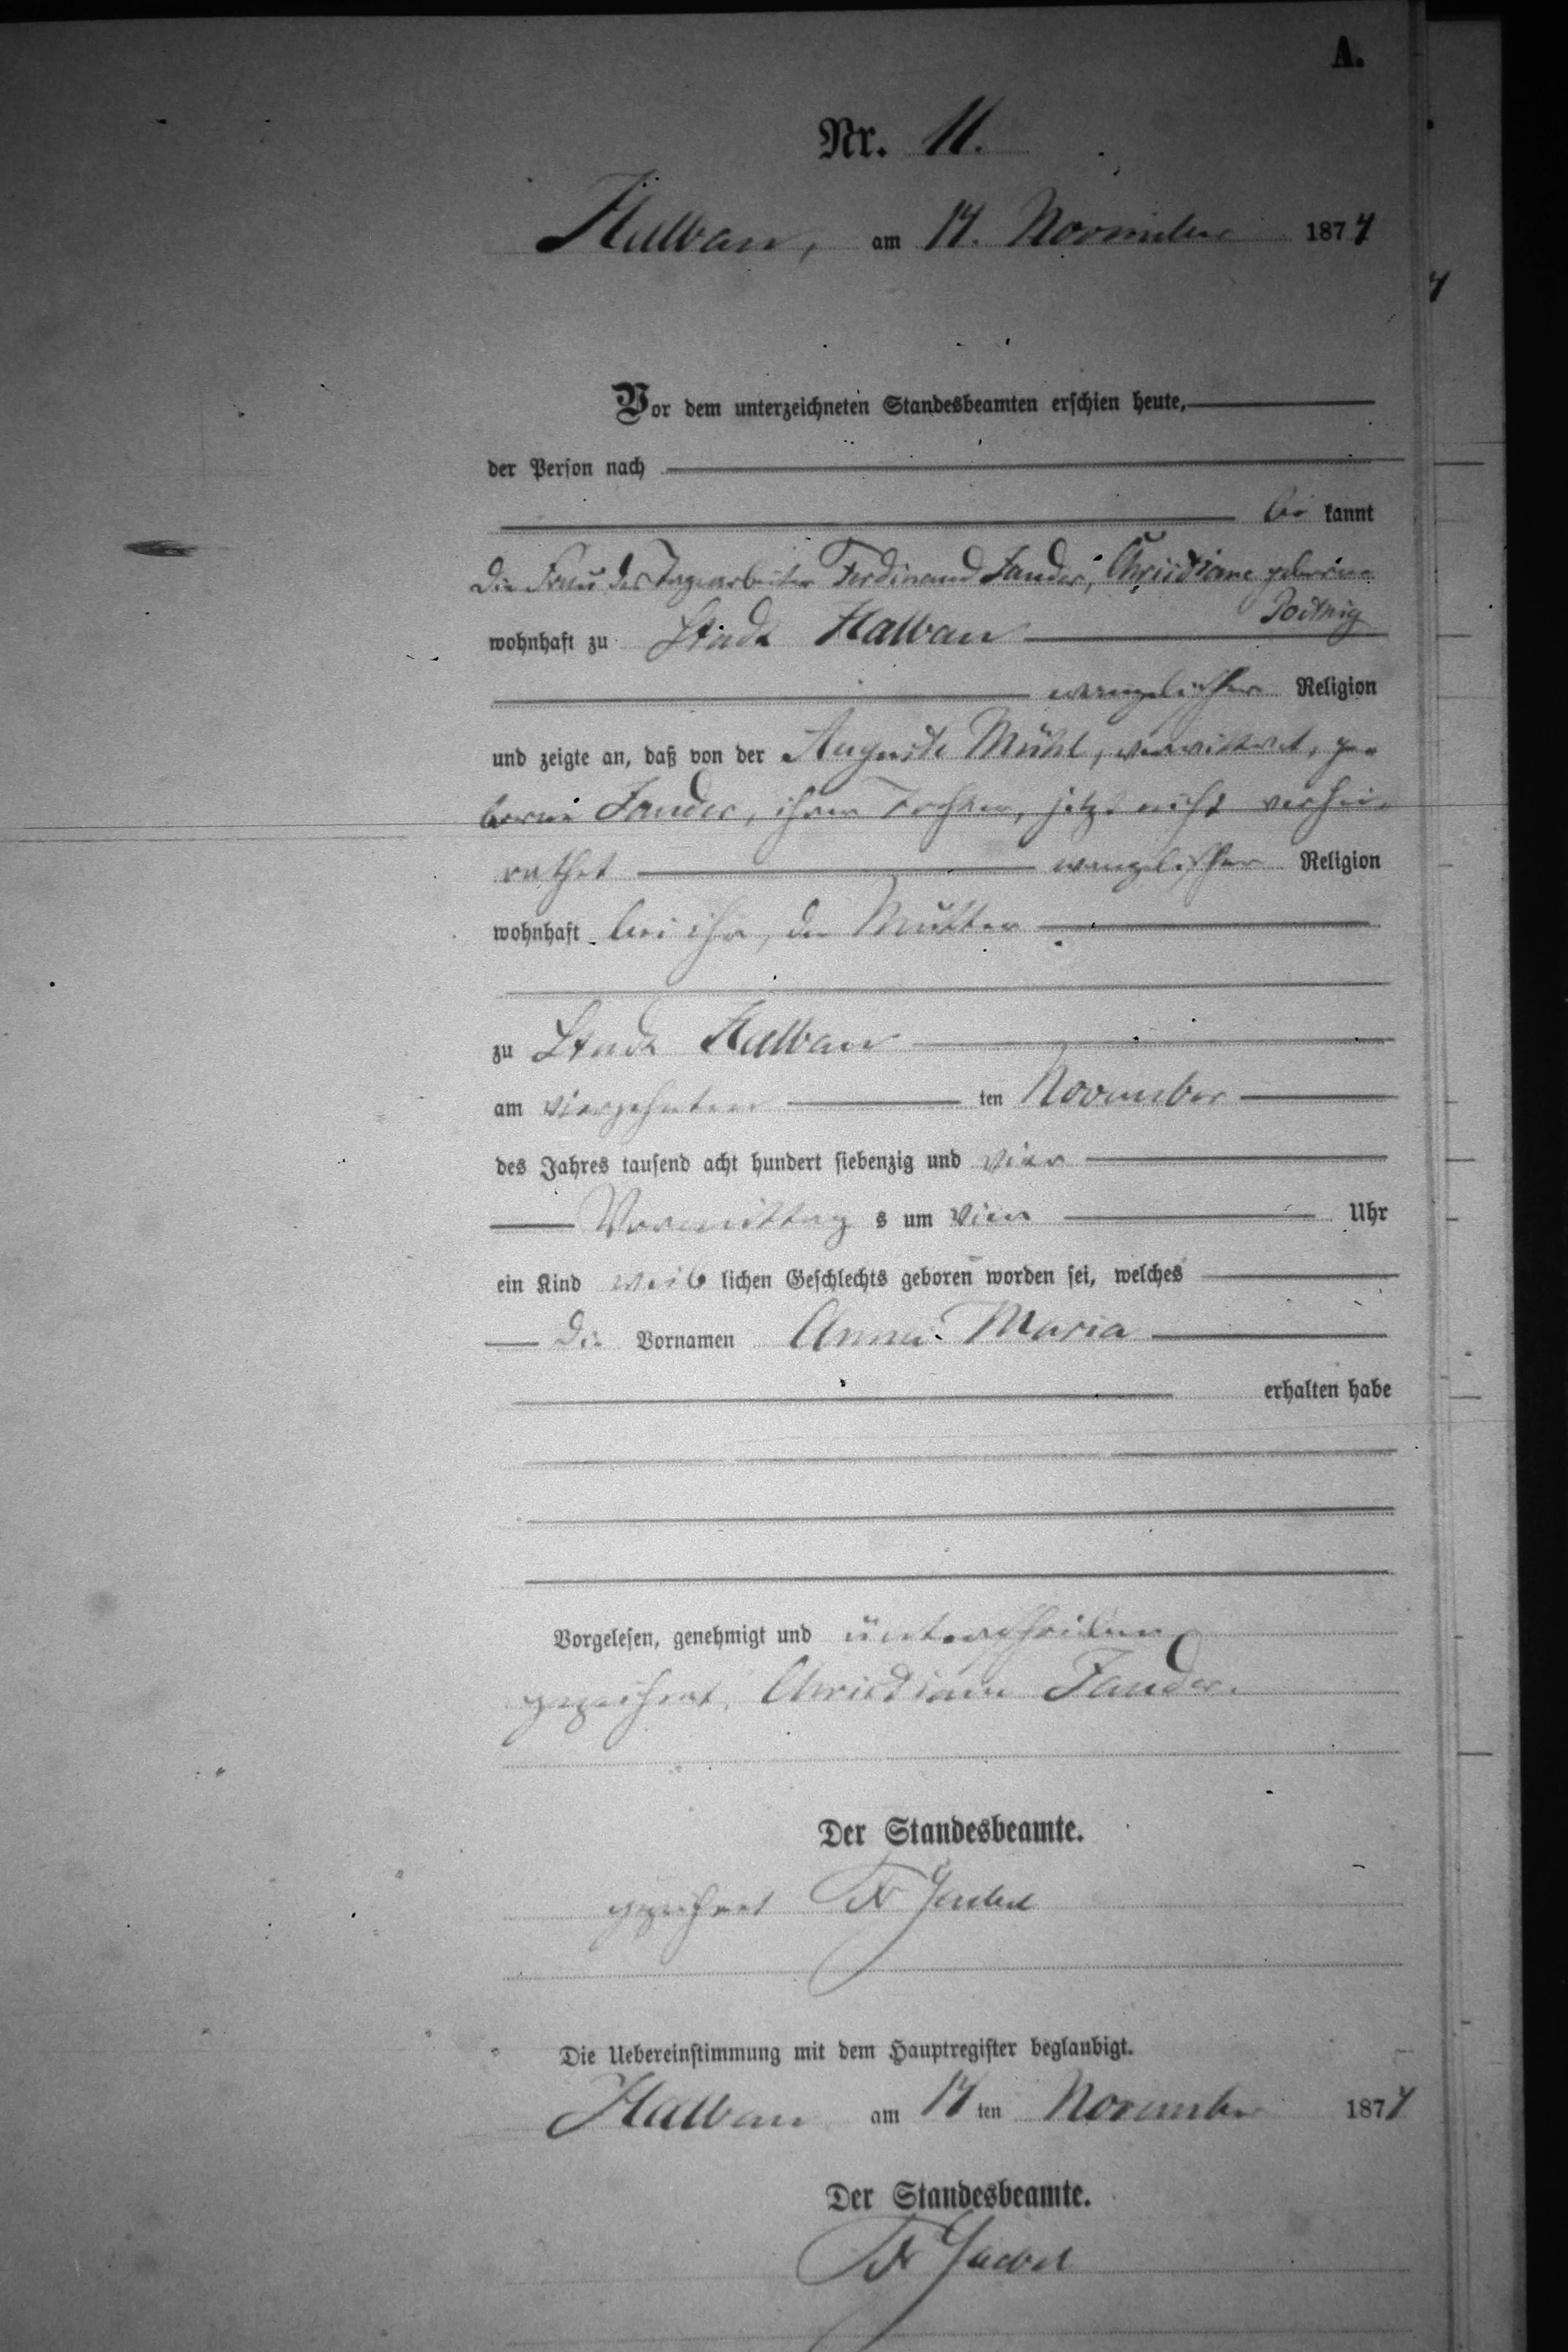 A.
Nr. 11.
Halbau, am 14. November 1874
Vor dem unterzeichneten Standesbeamten erschien heute,
der Person nach
be kannt
Die Frau des Tagearbeiter Ferdinand Zander, Christiane geborne
wohnhaft zu Stadt Halbau
evangelischer Religion
und zeigte an, daß von der Auguste Mühl, verwittwet, ge-
borne Zander, ihrer Tochter, jetzt nicht verhei-
rathet evangelischer Religion
wohnhaft bei ihr, der Mutter
zu Stadt Halbau
am vierzehnten ten November
des Jahres tausend acht hundert siebenzig und vier
Vormittag s um vier Uhr
ein Kind weib lichen Geschlechts geboren worden sei, welches
die Vornamen Anna Maria
erhalten habe
Vorgelesen, genehmigt und unterschrieben
gezeichnet, Christiane Zander.
Der Standesbeamte.
gezeichnet
Die Uebereinstimmung mit dem Hauptregister beglaubigt.
Halbau am 14 ten November 1874
Der Standesbeamte.